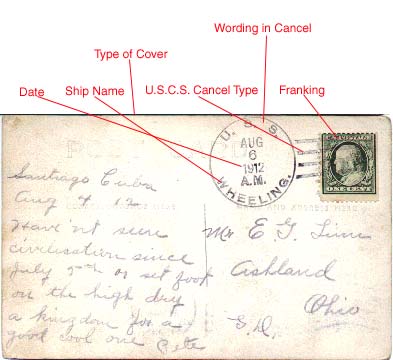 Wording in Cancel
Type of Cover
Date
Ship Name
U.S.C.S. Cancel Type
Franking
U. S. S.
AUG
6
1912
A.M.
WHEELING.
ONE CENT
Santiago Cuba
Aug 4 12
Have nt seen
civilisation since
July 5th or set foot
on the high dry
a kingdom for a
good cool one Pete
Mr E G
Ashland
Ohio